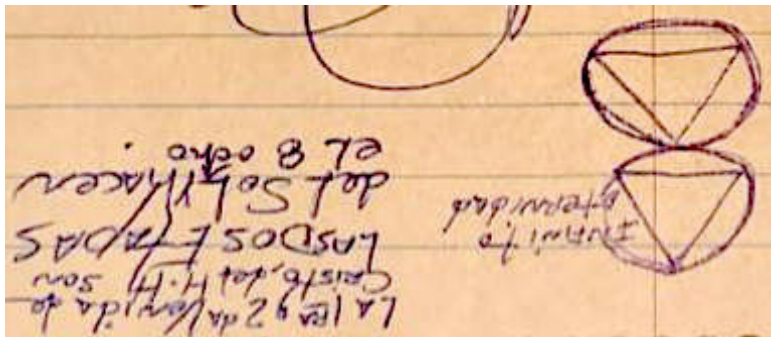 La 1RA y 2da Venida de
Cristo, del H.H son
LAS DOS ETADAS
del SoL, Y hacen
eL 8 ocho.
Infinito
eternidad